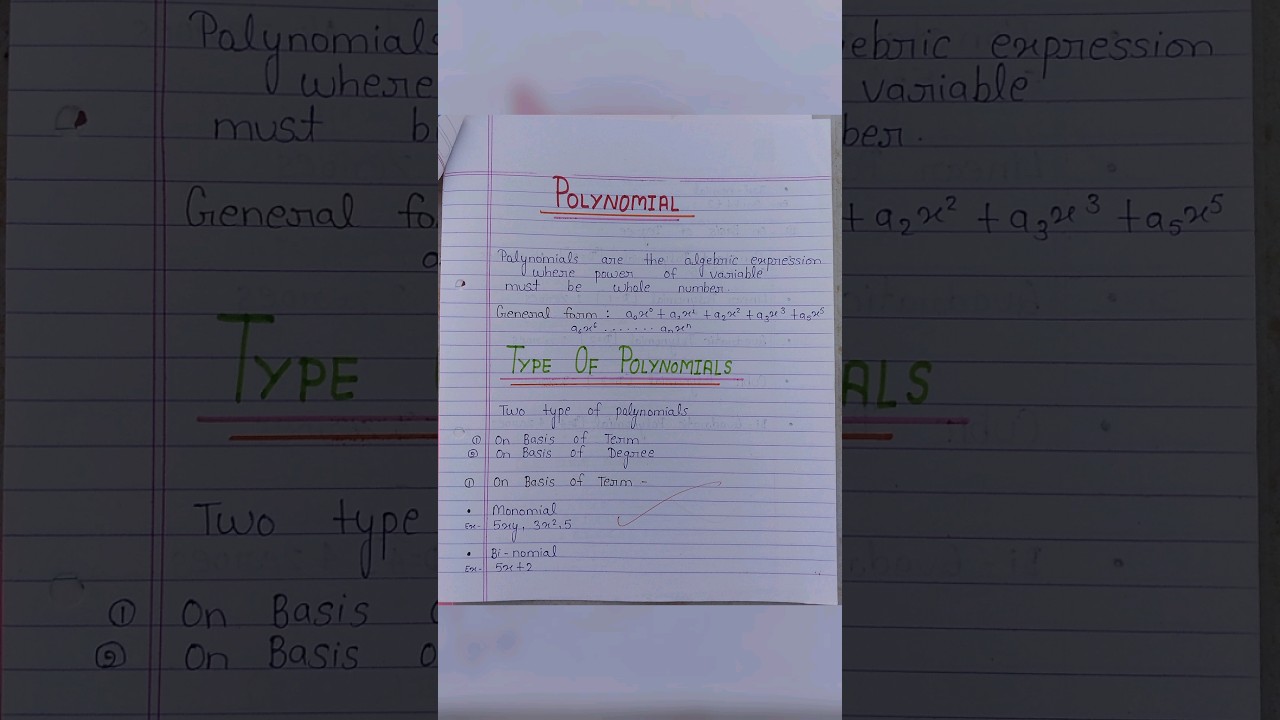 POLYNOMIAL
Polynomials are the algebric expression
where power of variable
must be whole number.
General form : a₀x⁰ + a₁x¹ + a₂x² + a₃x³ + a₅x⁵
a₆x⁶ ....... aₙxⁿ
TYPE OF POLYNOMIALS
Two type of polynomials
① On Basis of Term
② On Basis of Degree
① On Basis of Term -
• Monomial
Ex- 5xy, 3x², 5
• Bi-nomial
Ex- 5x+2